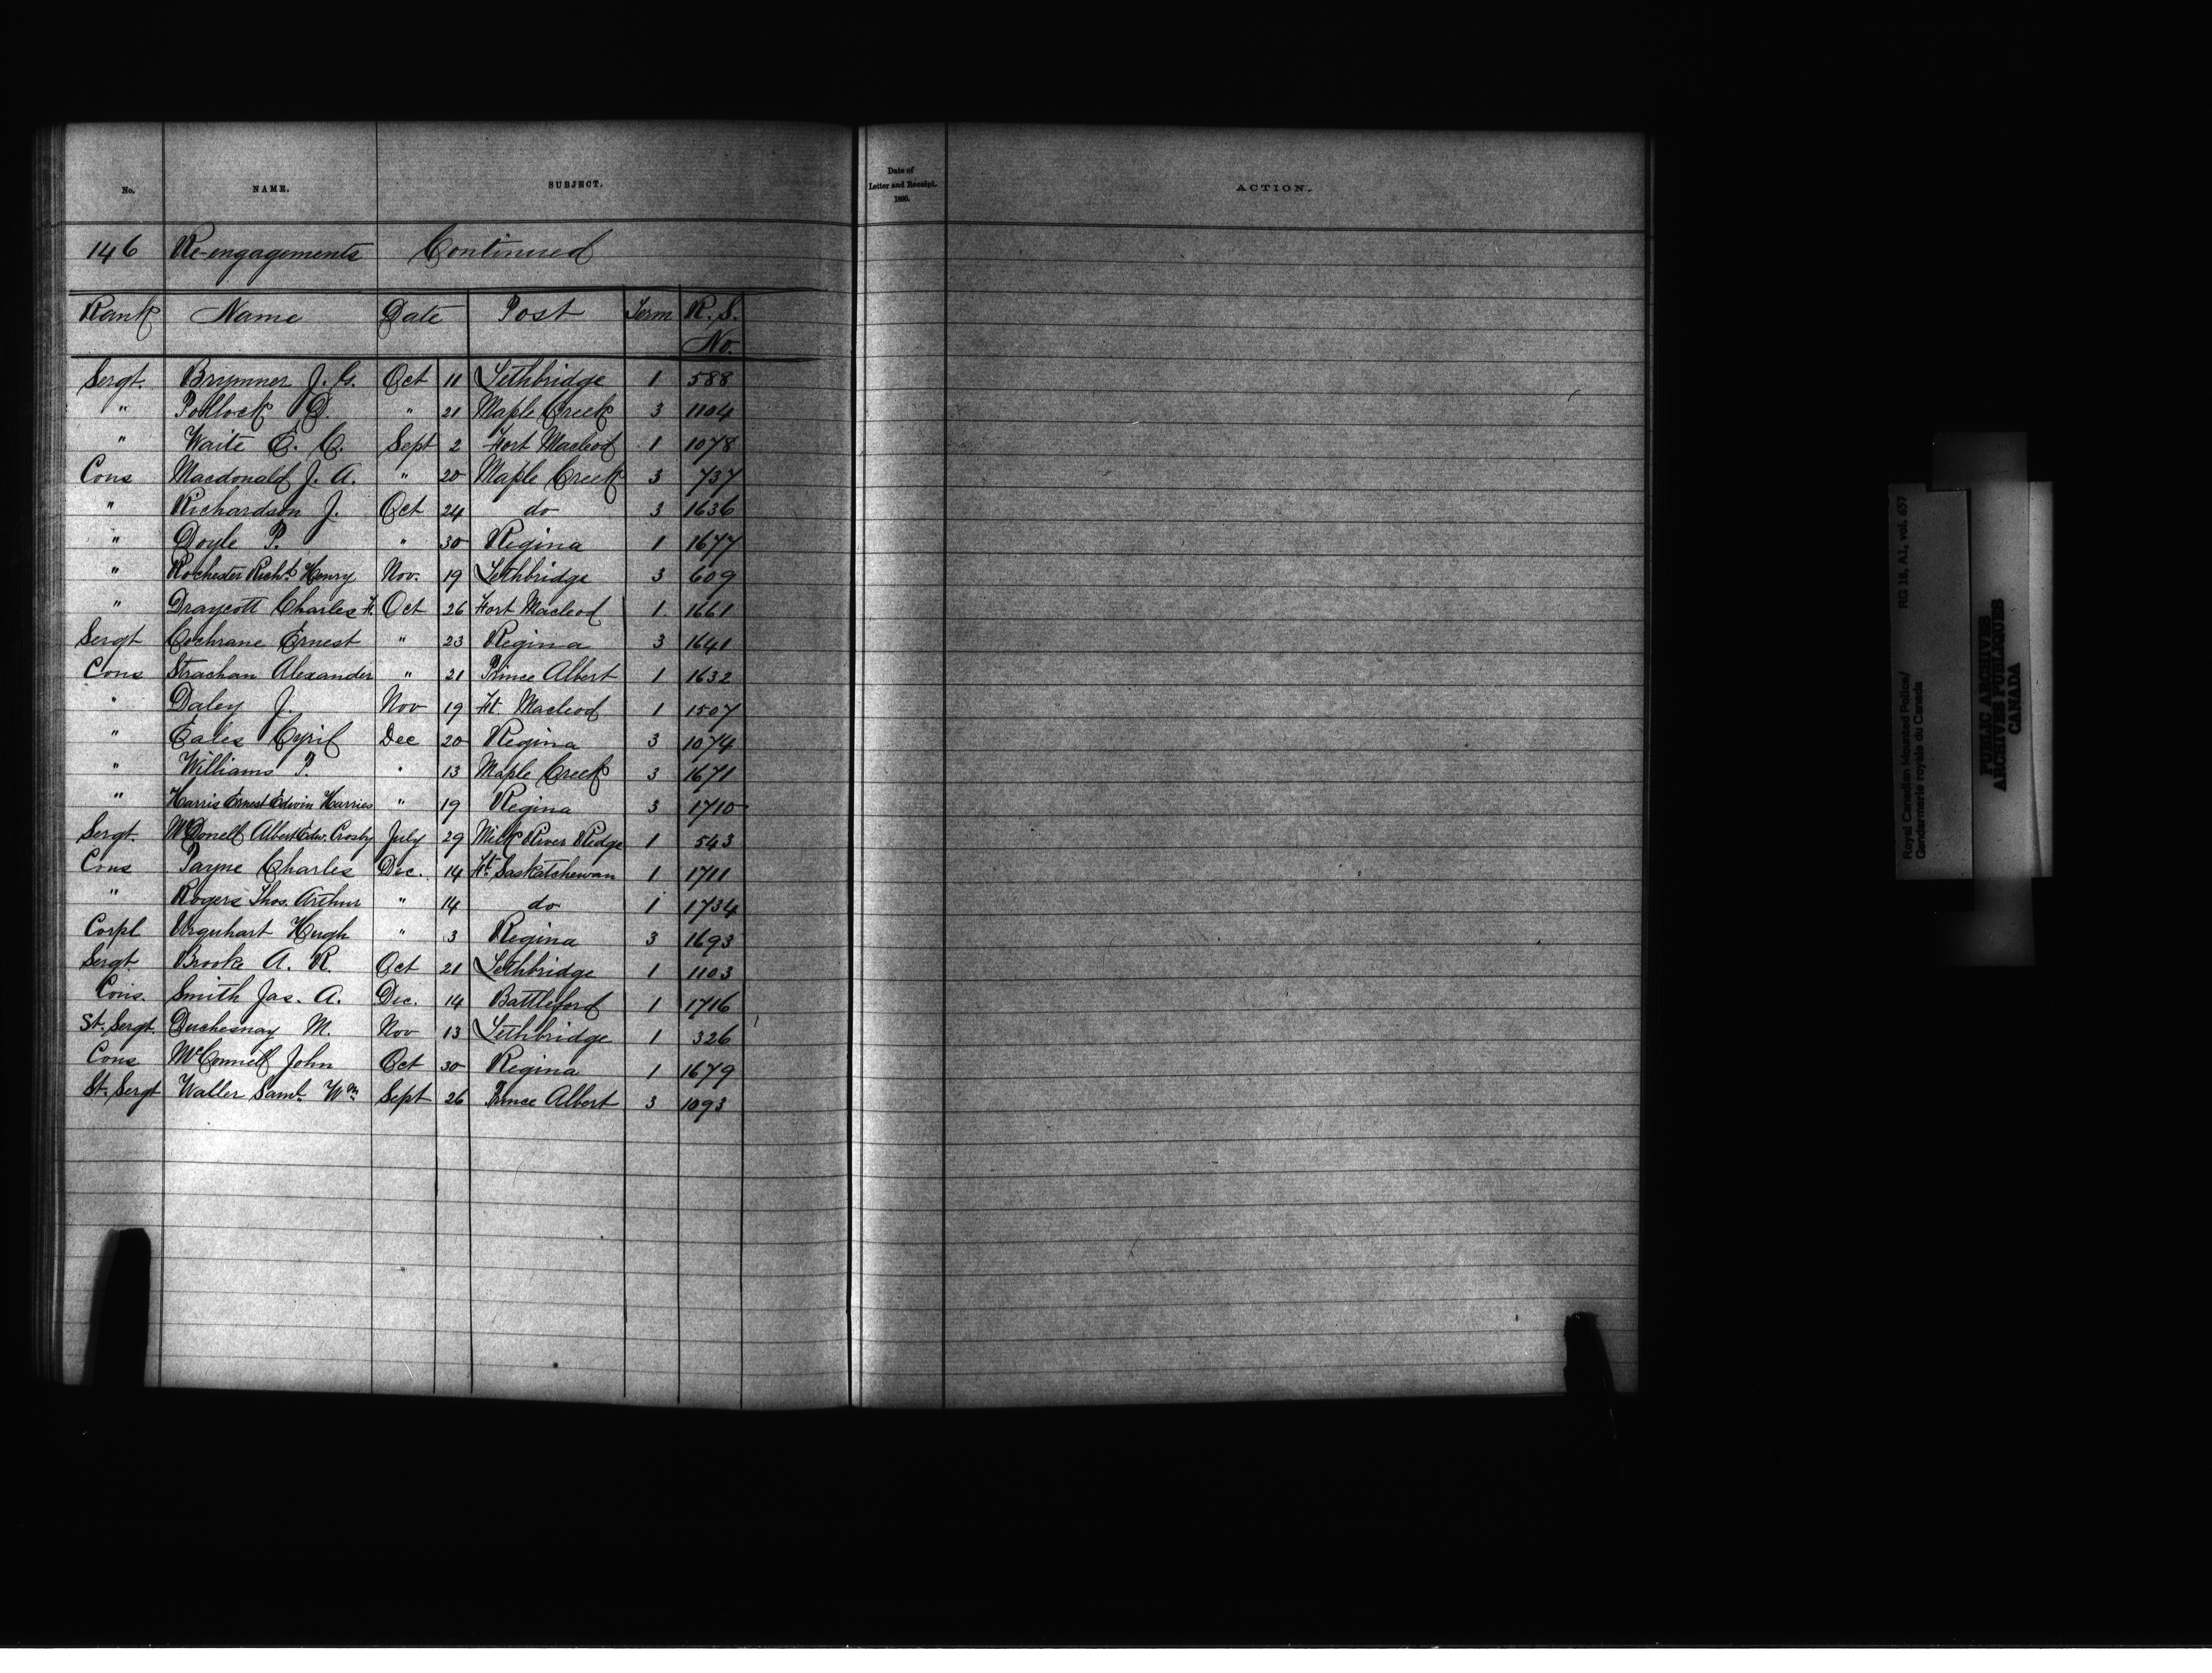 No. NAME. SUBJECT.
146 Re-engagements Continued
Rank Name Date Post Term R. S. No.
Sergt. Brymner J. G. Oct 11 Lethbridge 1 588
" Pollock D. " 21 Maple Creek 3 1104
" Waite E. C. Sept 2 Fort Macleod 1 1078
Cons Macdonald J. A. " 20 Maple Creek 3 737
" Richardson J. Oct 24 do 3 1636
" Doyle P. " 30 Regina 1 1677
" Rochester Richd Henry Nov. 19 Lethbridge 3 609
" Draycott Charles H. Oct 26 Fort Macleod 1. 1661
Sergt Cochrane Ernest " 23 Regina 3 1641
Cons Strachan Alexander " 21 Prince Albert 1 1632
" Daley J. Nov 19 Ft. Macleod 1 1507
" Eales Cyril Dec 20 Regina 3 1074
" Williams P. " 13 Maple Creek 3 1671
" Harris Ernest Edwin Harries " 19 Regina 3 1710
Sergt. McDonell Albert Edw. Crosby July 29 Milk River Ridge 1 543
Cons Payne Charles Dec. 14 Ft. Saskatchewan 1 1711
" Rogers Thos. Arthur " 14 do 1 1734
Corpl Urquhart Hugh " 3 Regina 3 1693
Sergt. Brooke A. R. Oct 21 Lethbridge 1 1103
Cons. Smith Jas. A. Dec. 14 Battleford 1 1716
St. Sergt. Duchesnay M. Nov 13 Lethbridge 1 326
Cons McConnell John Oct 30 Regina 1 1679
St. Sergt Waller Saml. Wm. Sept 26 Prince Albert 3 1093
Date of
Letter and Receipt.
1890.
ACTION.
Royal Canadian Mounted Police/ RG 18, A1, vol. 657
Gendarmerie royale du Canada
PUBLIC ARCHIVES
ARCHIVES PUBLIQUES
CANADA